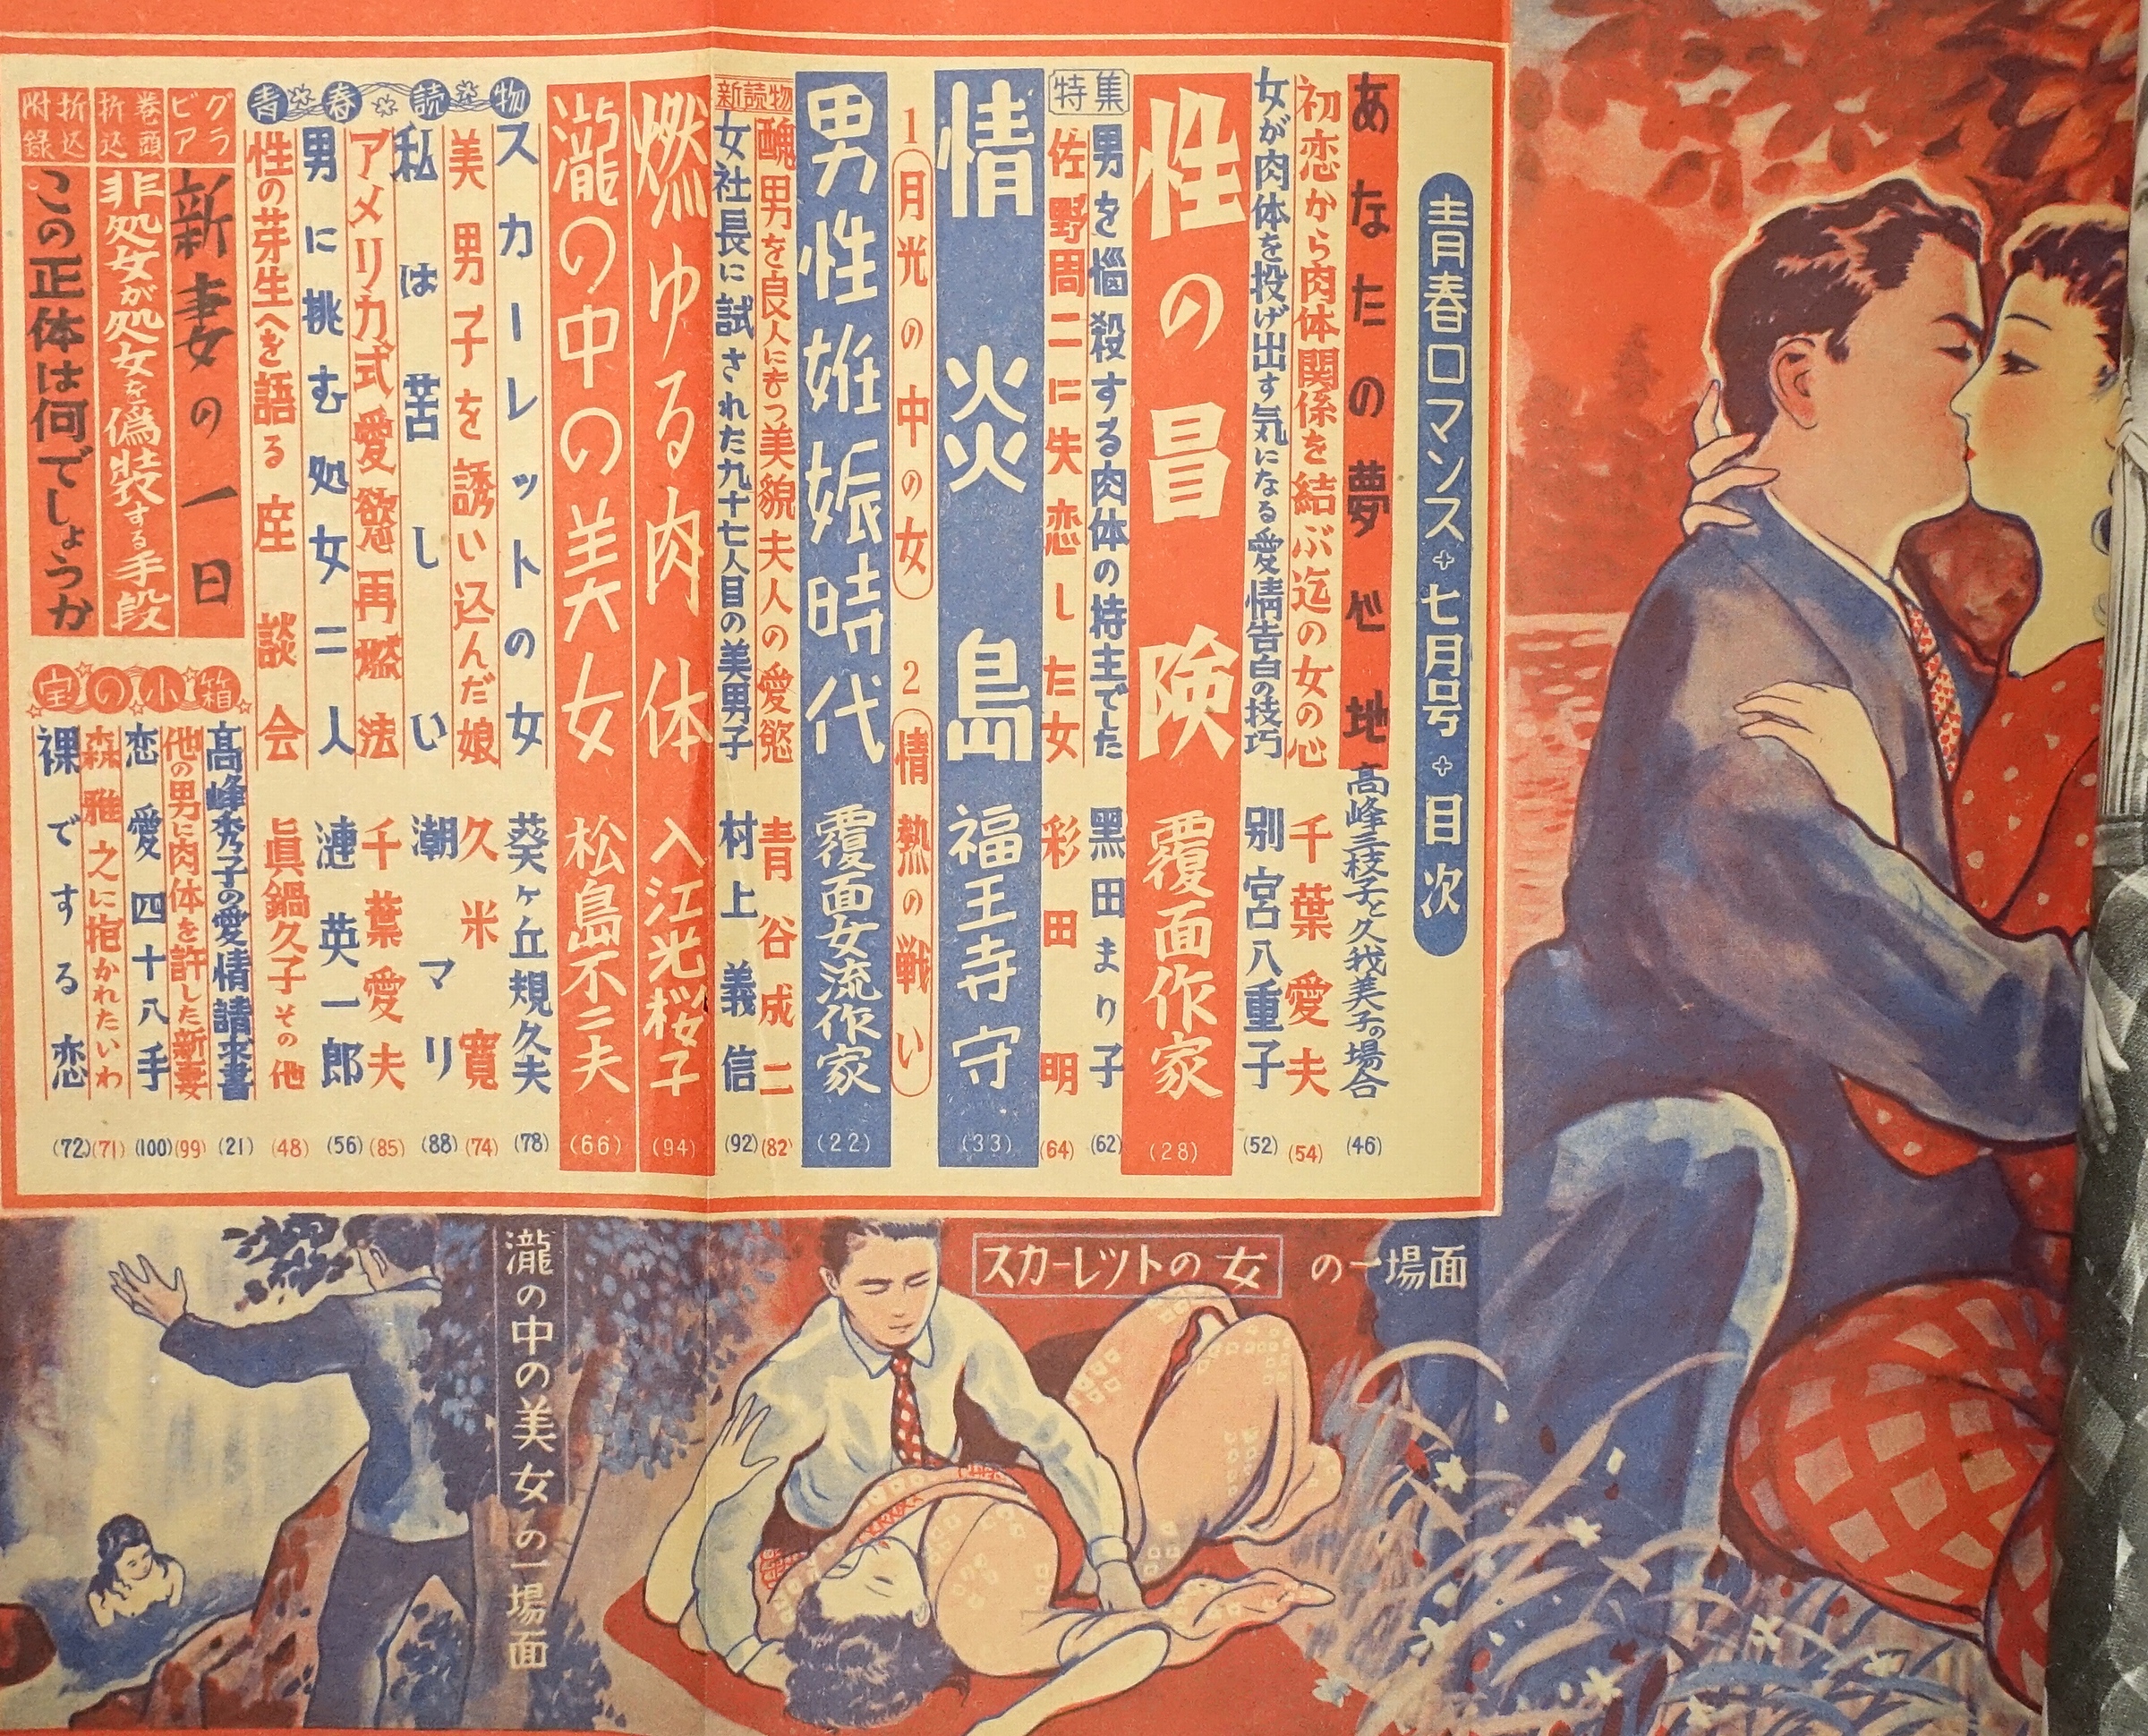 青春ロマンス 七月号 目次
あなたの夢心地 高峰三枝子と久我美子の場合 (46)
初恋から肉体関係を結ぶ迄の女の心 千葉愛夫 (54)
女が肉体を投げ出す気になる愛情告白の技巧 別宮八重子 (52)
性の冒険 覆面作家 (28)
特集
男を悩殺する肉体の持主でした 黒田まり子 (62)
佐野周二に失恋した女 彩田明 (64)
情炎島 福王寺守 (33)
1 月光の中の女 2 情熱の戦い
男性姙娠時代 覆面女流作家 (22)
新読物
醜男を良人にもつ美貌夫人の愛慾 青谷成二 (82)
女社長に試された九十七人目の美男子 村上義信 (92)
燃ゆる肉体 入江光桜子 (94)
瀧の中の美女 松島不二夫 (66)
青春読物
スカーレットの女 葵ヶ丘規久夫 (78)
美男子を誘い込んだ娘 久米寛 (74)
私は苦しい 潮マリ (88)
アメリカ式愛慾再燃法 千葉愛夫 (85)
男に挑む処女二人 漣英一郎 (56)
性の芽生へを語る座談会 眞鍋久子その他 (48)
グラビア 新妻の一日
巻頭折込 非処女が処女を偽装する手段
折込附録 この正体は何でしょうか
宝の小箱
高峰秀子の愛情請求書 (21)
他の男に肉体を許した新妻 (99)
恋愛四十八手 (100)
森雅之に抱かれたいわ (71)
裸でする恋 (72)
スカーレツトの女 の一場面
瀧の中の美女の一場面